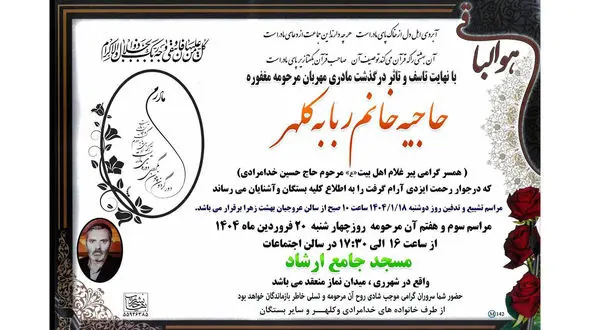 هوالباقی
کل من علیها فان و یبقی وجه ربک ذوالجلال و الاکرام
آبروی اهل دل از خاک پای مادر است هر چه دارند این جماعت از دعای مادر است
آن بهشتی را که قرآن می کند توصیف آن صاحب قرآن بگفتا زیر پای مادر است
با نهایت تاسف و تاثر درگذشت مادری مهربان مرحومه مغفوره
حاجیه خانم ربابه کلهر
( همسر گرامی پیر غلام اهل بیت«ع» مرحوم حاج حسین خدامرادی)
که درجوار رحمت ایزدی آرام گرفت را به اطلاع کلیه بستگان وآشنایان می رساند
مراسم تشییع و تدفین روز دوشنبه ۱۴۰۴/۱/۱۸ ساعت ۱۰ صبح از سالن عروجیان بهشت زهرا برقرار می باشد.
مراسم سوم و هفتم آن مرحومه روزچهار شنبه ۲۰ فروردین ماه ۱۴۰۴
از ساعت ۱۶ الی ۱۷:۳۰ در سالن اجتماعات
مسجد جامع ارشاد
واقع در شهرری ، میدان نماز منعقد می باشد
حضور شما سروران گرامی موجب شادی روح آن مرحومه و تسلی خاطر بازماندگان خواهد بود
از طرف خانواده های خدامرادی وکلهر و سایر بستگان
مادرم
۵۵۹۲۶۲۸۵
M 142